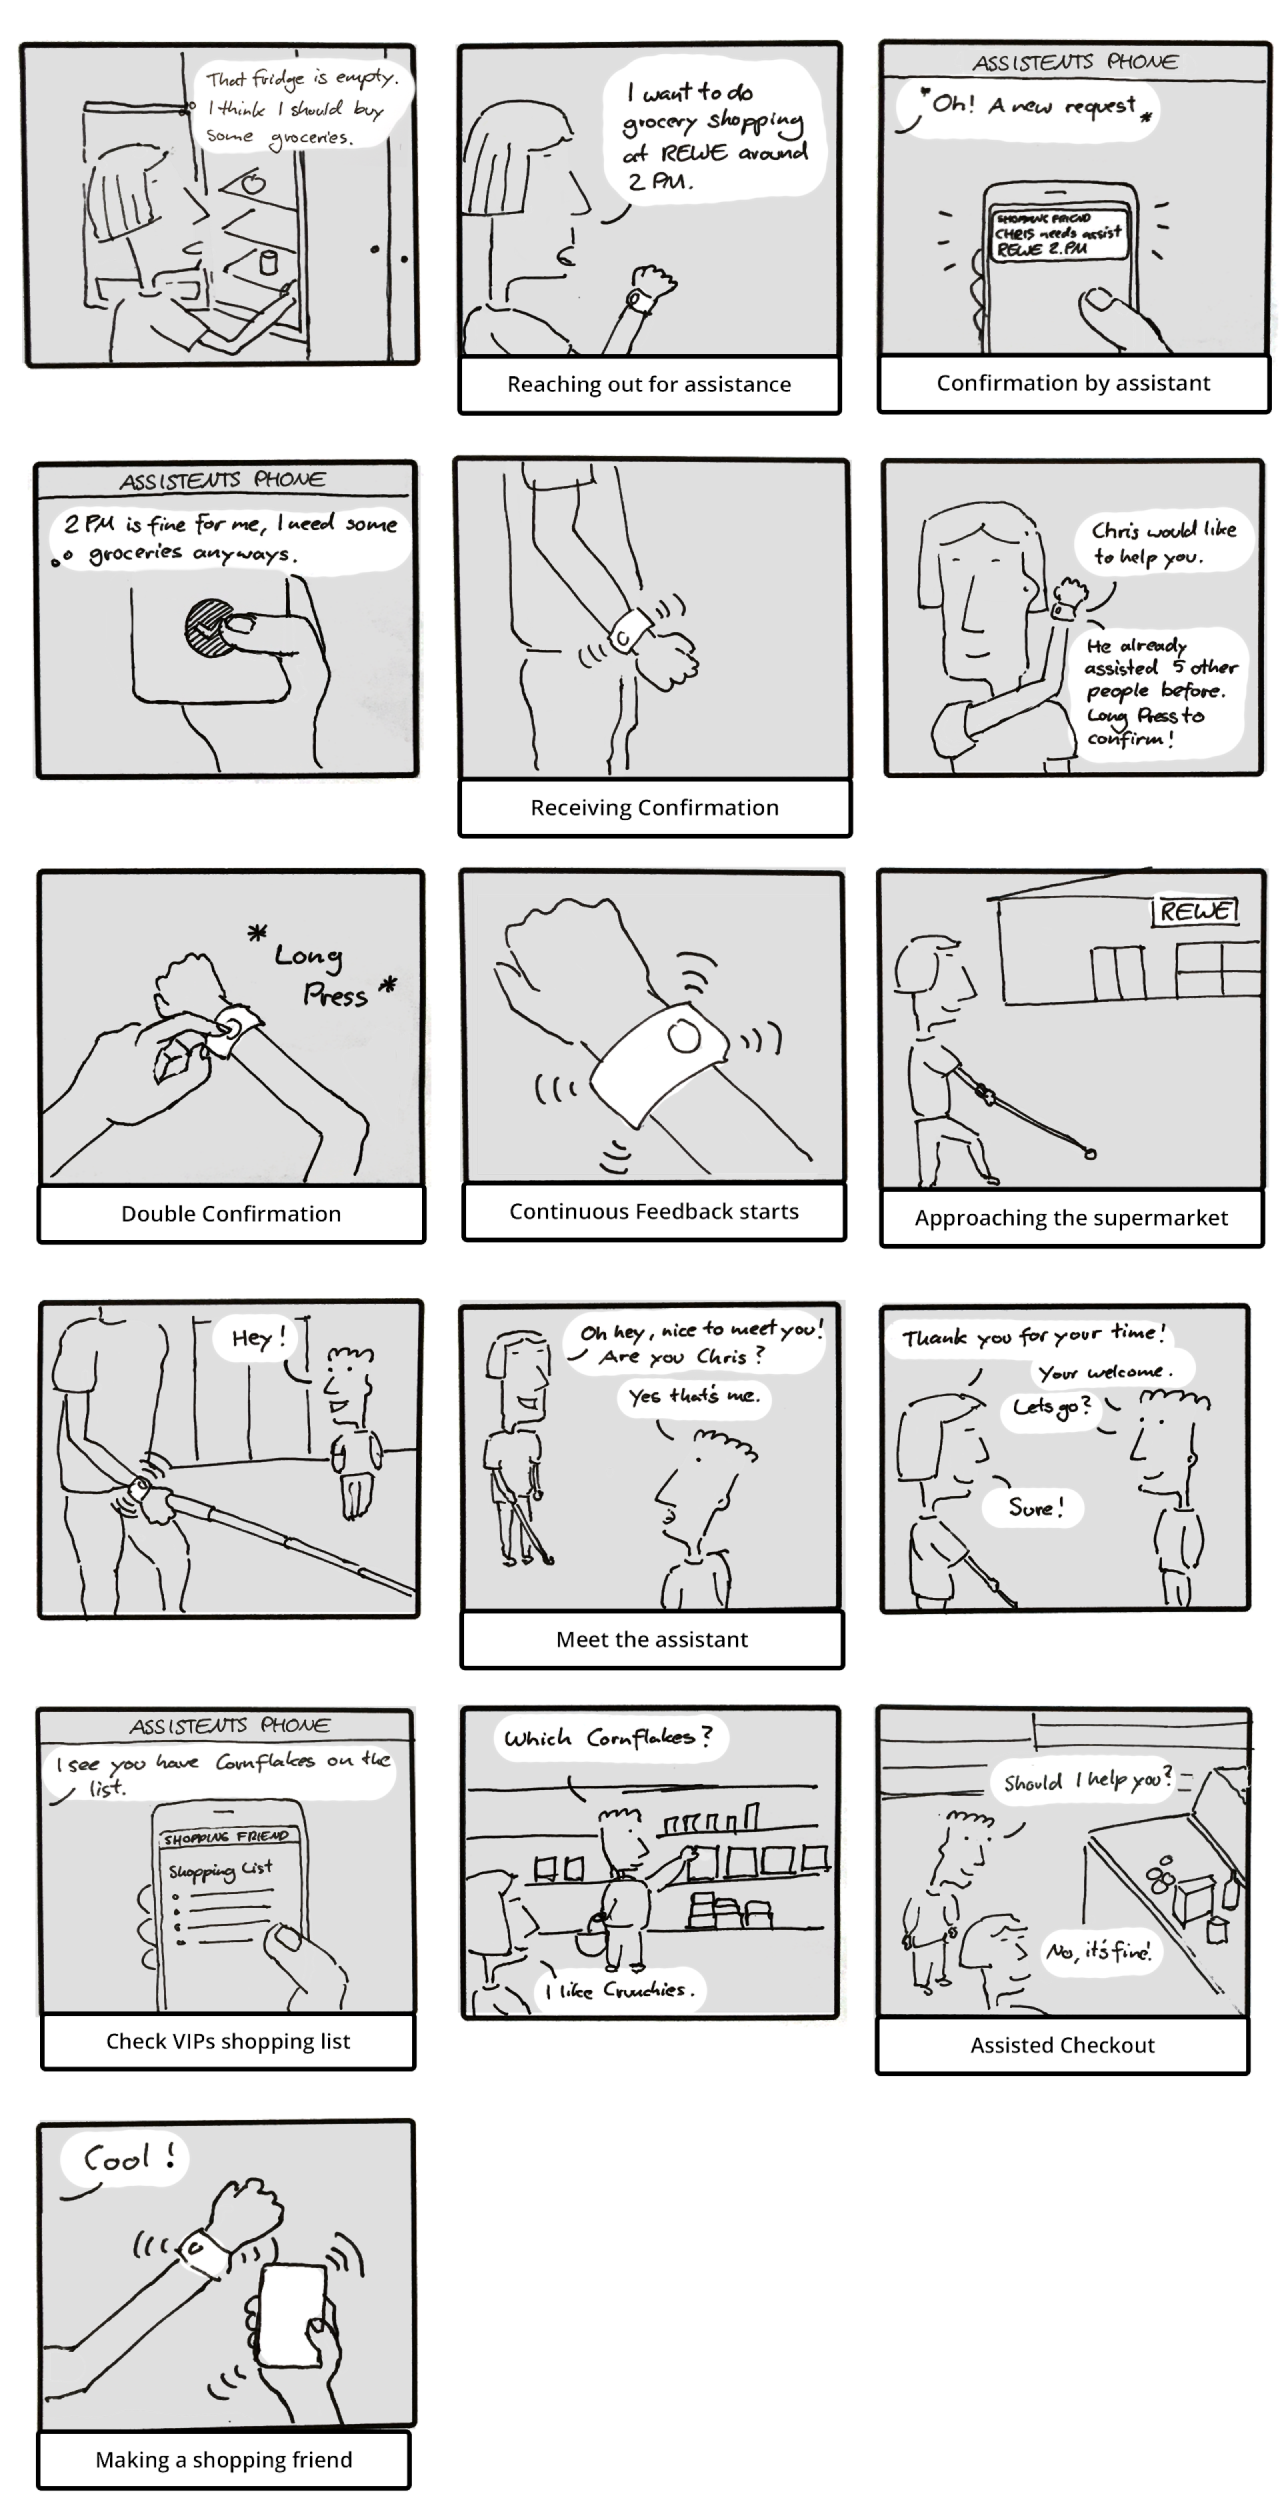 That fridge is empty.
I think I should buy
some groceries.
I want to do
grocery shopping
at REWE around
2 PM.
Reaching out for assistance
ASSISTENTS PHONE
*Oh! A new request*
SHOPPING FRIEND
CHRIS needs assist
REWE 2.PM
Confirmation by assistant
ASSISTENTS PHONE
2 PM is fine for me, I need some
groceries anyways.
Receiving Confirmation
Chris would like
to help you.
He already
assisted 5 other
people before.
Long Press to
confirm!
*Long
Press*
Double Confirmation
Continuous Feedback starts
REWE
Approaching the supermarket
Hey!
Oh hey, nice to meet you!
Are you Chris?
Yes that's me.
Meet the assistant
Thank you for your time!
Your welcome.
Lets go?
Sure!
ASSISTENTS PHONE
I see you have Cornflakes on the
list.
SHOPPING FRIEND
Shopping List
Check VIPs shopping list
Which Cornflakes?
I like Crunchies.
Should I help you?
No, it's fine!
Assisted Checkout
Cool!
Making a shopping friend